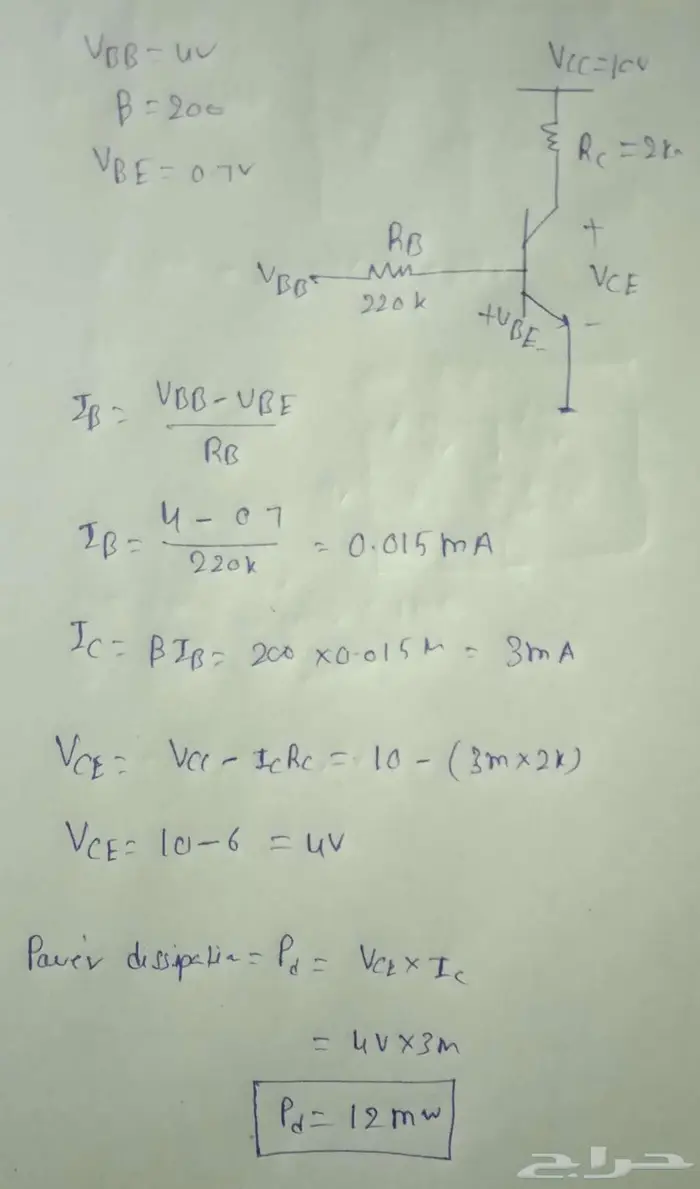 VBB = 4V
β = 200
VBE = 0.7V
VCC = 10V
RC = 2k
RB
VBB
220k
+
VCE
-
+VBE-
IB = VBB - VBE
RB
IB = 4 - 0.7
220k
= 0.015mA
IC = βIB = 200 × 0.015m = 3mA
VCE = VCC - ICRC = 10 - (3m × 2k)
VCE = 10 - 6 = 4V
Power dissipation = Pd = VCE × IC
= 4V × 3m
Pd = 12mw
حراج